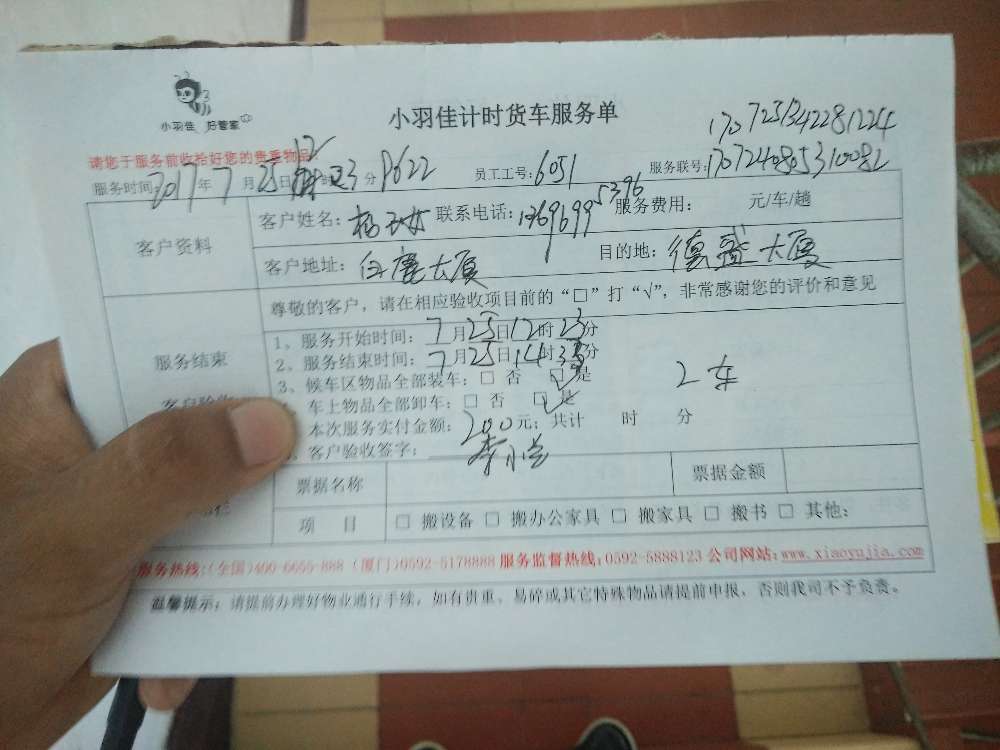 小羽佳 好管家
小羽佳计时货车服务单
17072313422281224
请您于服务前收拾好您的贵重物品
服务时间:2017年7月25日12时23分 P622 员工工号:6051 服务联号:170724085310082
客户资料
客户姓名: 联系电话:13696995396 服务费用: 元/车/趟
客户地址:白鹿大厦 目的地:德盛大厦
服务结束
尊敬的客户，请在相应验收项目前的“□”打“√”，非常感谢您的评价和意见
1、服务开始时间:7月25日12时23分
2、服务结束时间:7月25日14时35分
3、候车区物品全部装车:□ 否 □√是 2车
车上物品全部卸车:□ 否 □√是
本次服务实付金额:200元;共计 时 分
、客户验收签字:
票据名称 票据金额
项 目 □ 搬设备 □ 搬办公家具 □ 搬家具 □ 搬书 □ 其他:
服务热线:(全国)400-6655-888 (厦门)0592-5178888 服务监督热线:0592-5888123 公司网站:www.xiaoyujia.com
温馨提示:请提前办理好物业通行手续，如有贵重、易碎或其它特殊物品请提前申报，否则我司不予负责。